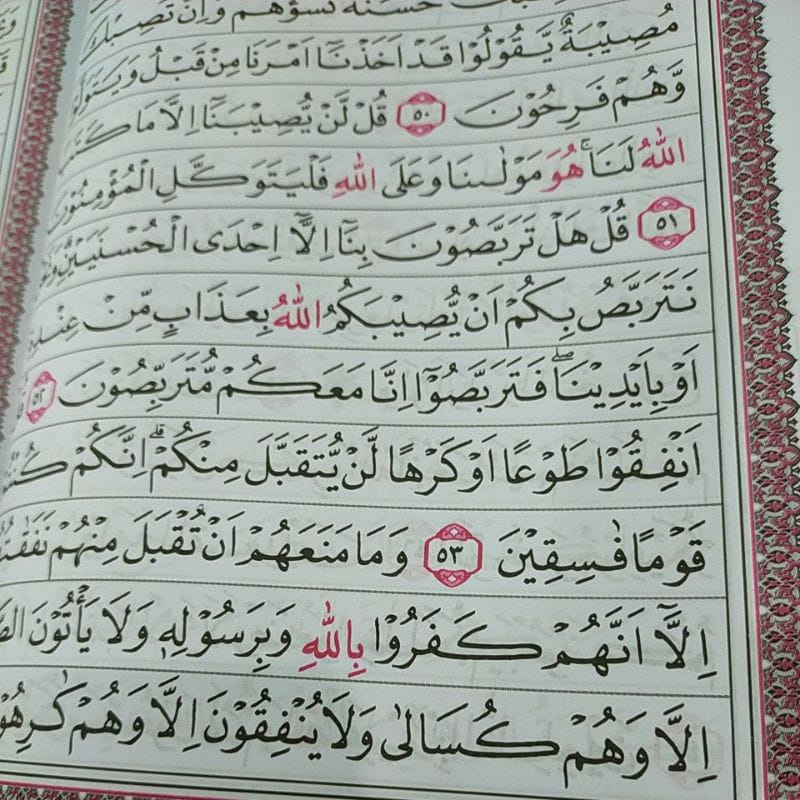 حَسَنَةٌ تَسُؤْهُمْ وَاِنْ تُصِبْكَ
مُصِيْبَةٌ يَّقُوْلُوْا قَدْ اَخَذْنَآ اَمْرَنَا مِنْ قَبْلُ وَيَتَوَلَّوْا
وَّهُمْ فَرِحُوْنَ ٥٠ قُلْ لَّنْ يُّصِيْبَنَآ اِلَّا مَا كَتَبَ
اللّٰهُ لَنَاۚ هُوَ مَوْلٰىنَا وَعَلَى اللّٰهِ فَلْيَتَوَكَّلِ الْمُؤْمِنُوْنَ
٥١ قُلْ هَلْ تَرَبَّصُوْنَ بِنَآ اِلَّآ اِحْدَى الْحُسْنَيَيْنِۗ
نَتَرَبَّصُ بِكُمْ اَنْ يُّصِيْبَكُمُ اللّٰهُ بِعَذَابٍ مِّنْ عِنْدِهٖٓ
اَوْ بِاَيْدِيْنَاۖ فَتَرَبَّصُوْٓا اِنَّا مَعَكُمْ مُّتَرَبِّصُوْنَ ٥٢
اَنْفِقُوْا طَوْعًا اَوْ كَرْهًا لَّنْ يُّتَقَبَّلَ مِنْكُمْۗ اِنَّكُمْ
قَوْمًا فٰسِقِيْنَ ٥٣ وَمَا مَنَعَهُمْ اَنْ تُقْبَلَ مِنْهُمْ
اِلَّآ اَنَّهُمْ كَفَرُوْا بِاللّٰهِ وَبِرَسُوْلِهٖ وَلَا يَأْتُوْنَ
اِلَّا وَهُمْ كُسَالٰى وَلَا يُنْفِقُوْنَ اِلَّا وَهُمْ